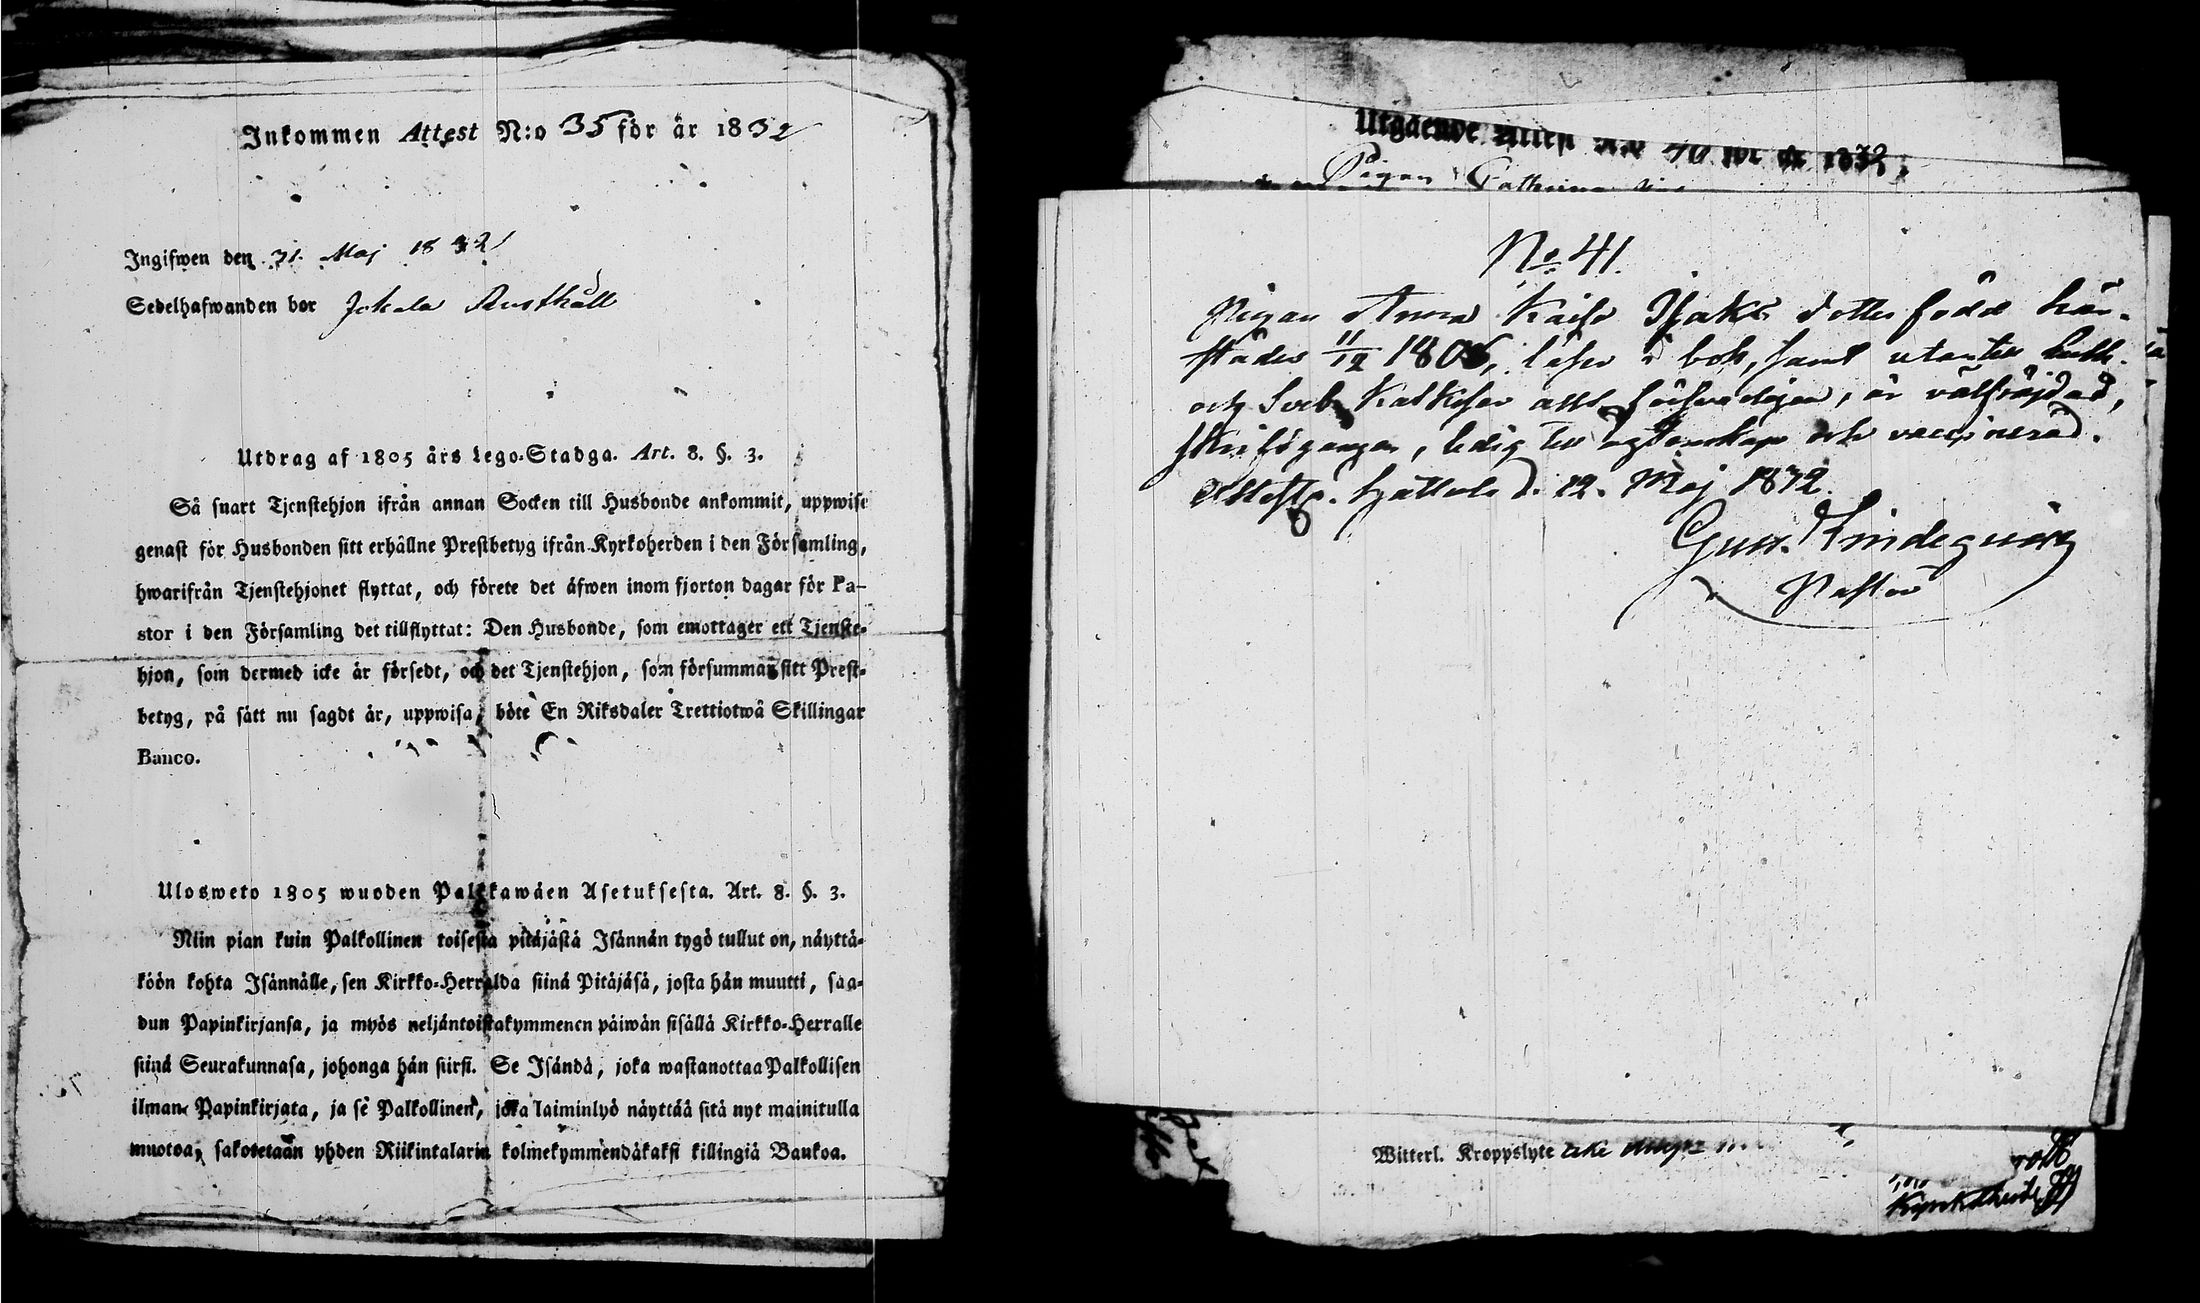 Inkommen Attest N:o 35 för år 1832
Ingifwen den 31. Maj 1832
Sedelhafwanden bor Jokela Rusthåll
Utdrag af 1805 års Lego-Stadga. Art. 8. §. 3.
Så snart Tjenstehjon ifrån annan Socken till Husbonde ankommit, uppwise
genast för Husbonden sitt erhållne Prestbetyg ifrån Kyrkoherden i den Församling,
hwarifrån Tjenstehjonet flyttat, och förete det äfwen inom fjorton dagar för Pa-
stor i den Församling det tillflyttat: Den Husbonde, som emottager ett Tjenste-
hjon, som dermed icke är försedt, och det Tjenstehjon, som försummar sitt Prest-
betyg, på sätt nu sagdt är, uppwisa, böte En Riksdaler Trettiotwå Skillingar
Banco.
Ulosweto 1805 wuoden Palkkawäen Asetuksesta. Art. 8. §. 3.
Niin pian kuin Palkollinen toisesta pitäjästä Isännän tygö tullut on, näyttä-
köön kohta Isännälle, sen Kirkko-Herralda siinä Pitäjäsä, josta hän muutti, saa-
dun Papinkirjansa, ja myös neljäntoistakymmenen päiwän sisällä Kirkko-Herralle
siinä Seurakunnasa, johonga hän siirsi. Se Isändä, joka wastanottaa Palkollisen
ilman Papinkirjata, ja se Palkollinen, joka laiminlyö näyttää sitä nyt mainitulla
muotoa, sakotetaan yhden Riikintalarin kolmekymmendäkaksi killingiä Baukoa.
Utgående Attest N:o 40 för år 1832
Pigan Cathrina
No 41.
Pigan Anna Kaisa Isaks dotter född här-
städes 11/12 1806, läser i bok, samt utantill Luth.
och Sveb. Katkeser allt försvarligen, är välfräjdad,
skriftgången, ledig till ägtenskap och vaccinerad.
Attest. Hattula d. 12. Maj 1832.
Gust. Lindeqvist
Pastor
Witterl. Kroppslyte icke